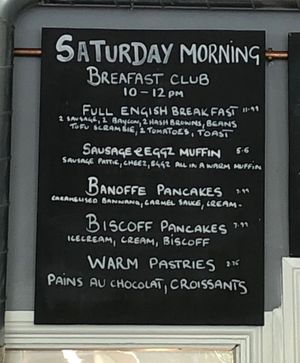 SATURDAY MORNING
BREAFAST CLUB
10-12PM
FULL ENGISH BREAKFAST 11.99
2 SAUSAGE, 2 BAYCON, 2 HASH BROWNS, BEANS
TOFU SCRAMBLE, 2 TOMATOES, TOAST
SAUSAGE & EGGZ MUFFIN 5.5
SAUSAGE PATTIE, CHEEZ, EGGZ ALL IN A WARM MUFFIN
BANOFFE PANCAKES 7.99
CARAMELISED BANNANA, CARMEL SAUCE, CREAM
BISCOFF PANCAKES 7.99
ICECREAM, CREAM, BISCOFF
WARM PASTRIES 2.75
PAINS AU CHOCOLAT, CROISSANTS